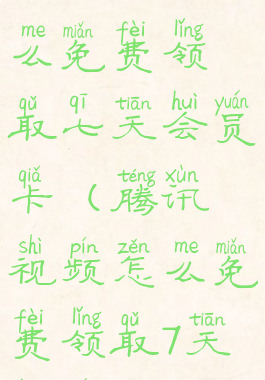 me miǎn fèi lǐng
么免费领
qǔ qī tiān huì yuán
取七天会员
qiǎ téng xùn
卡（腾讯
shì pín zěn me miǎn
视频怎么免
fèi lǐng qǔ tiān
费领取7天